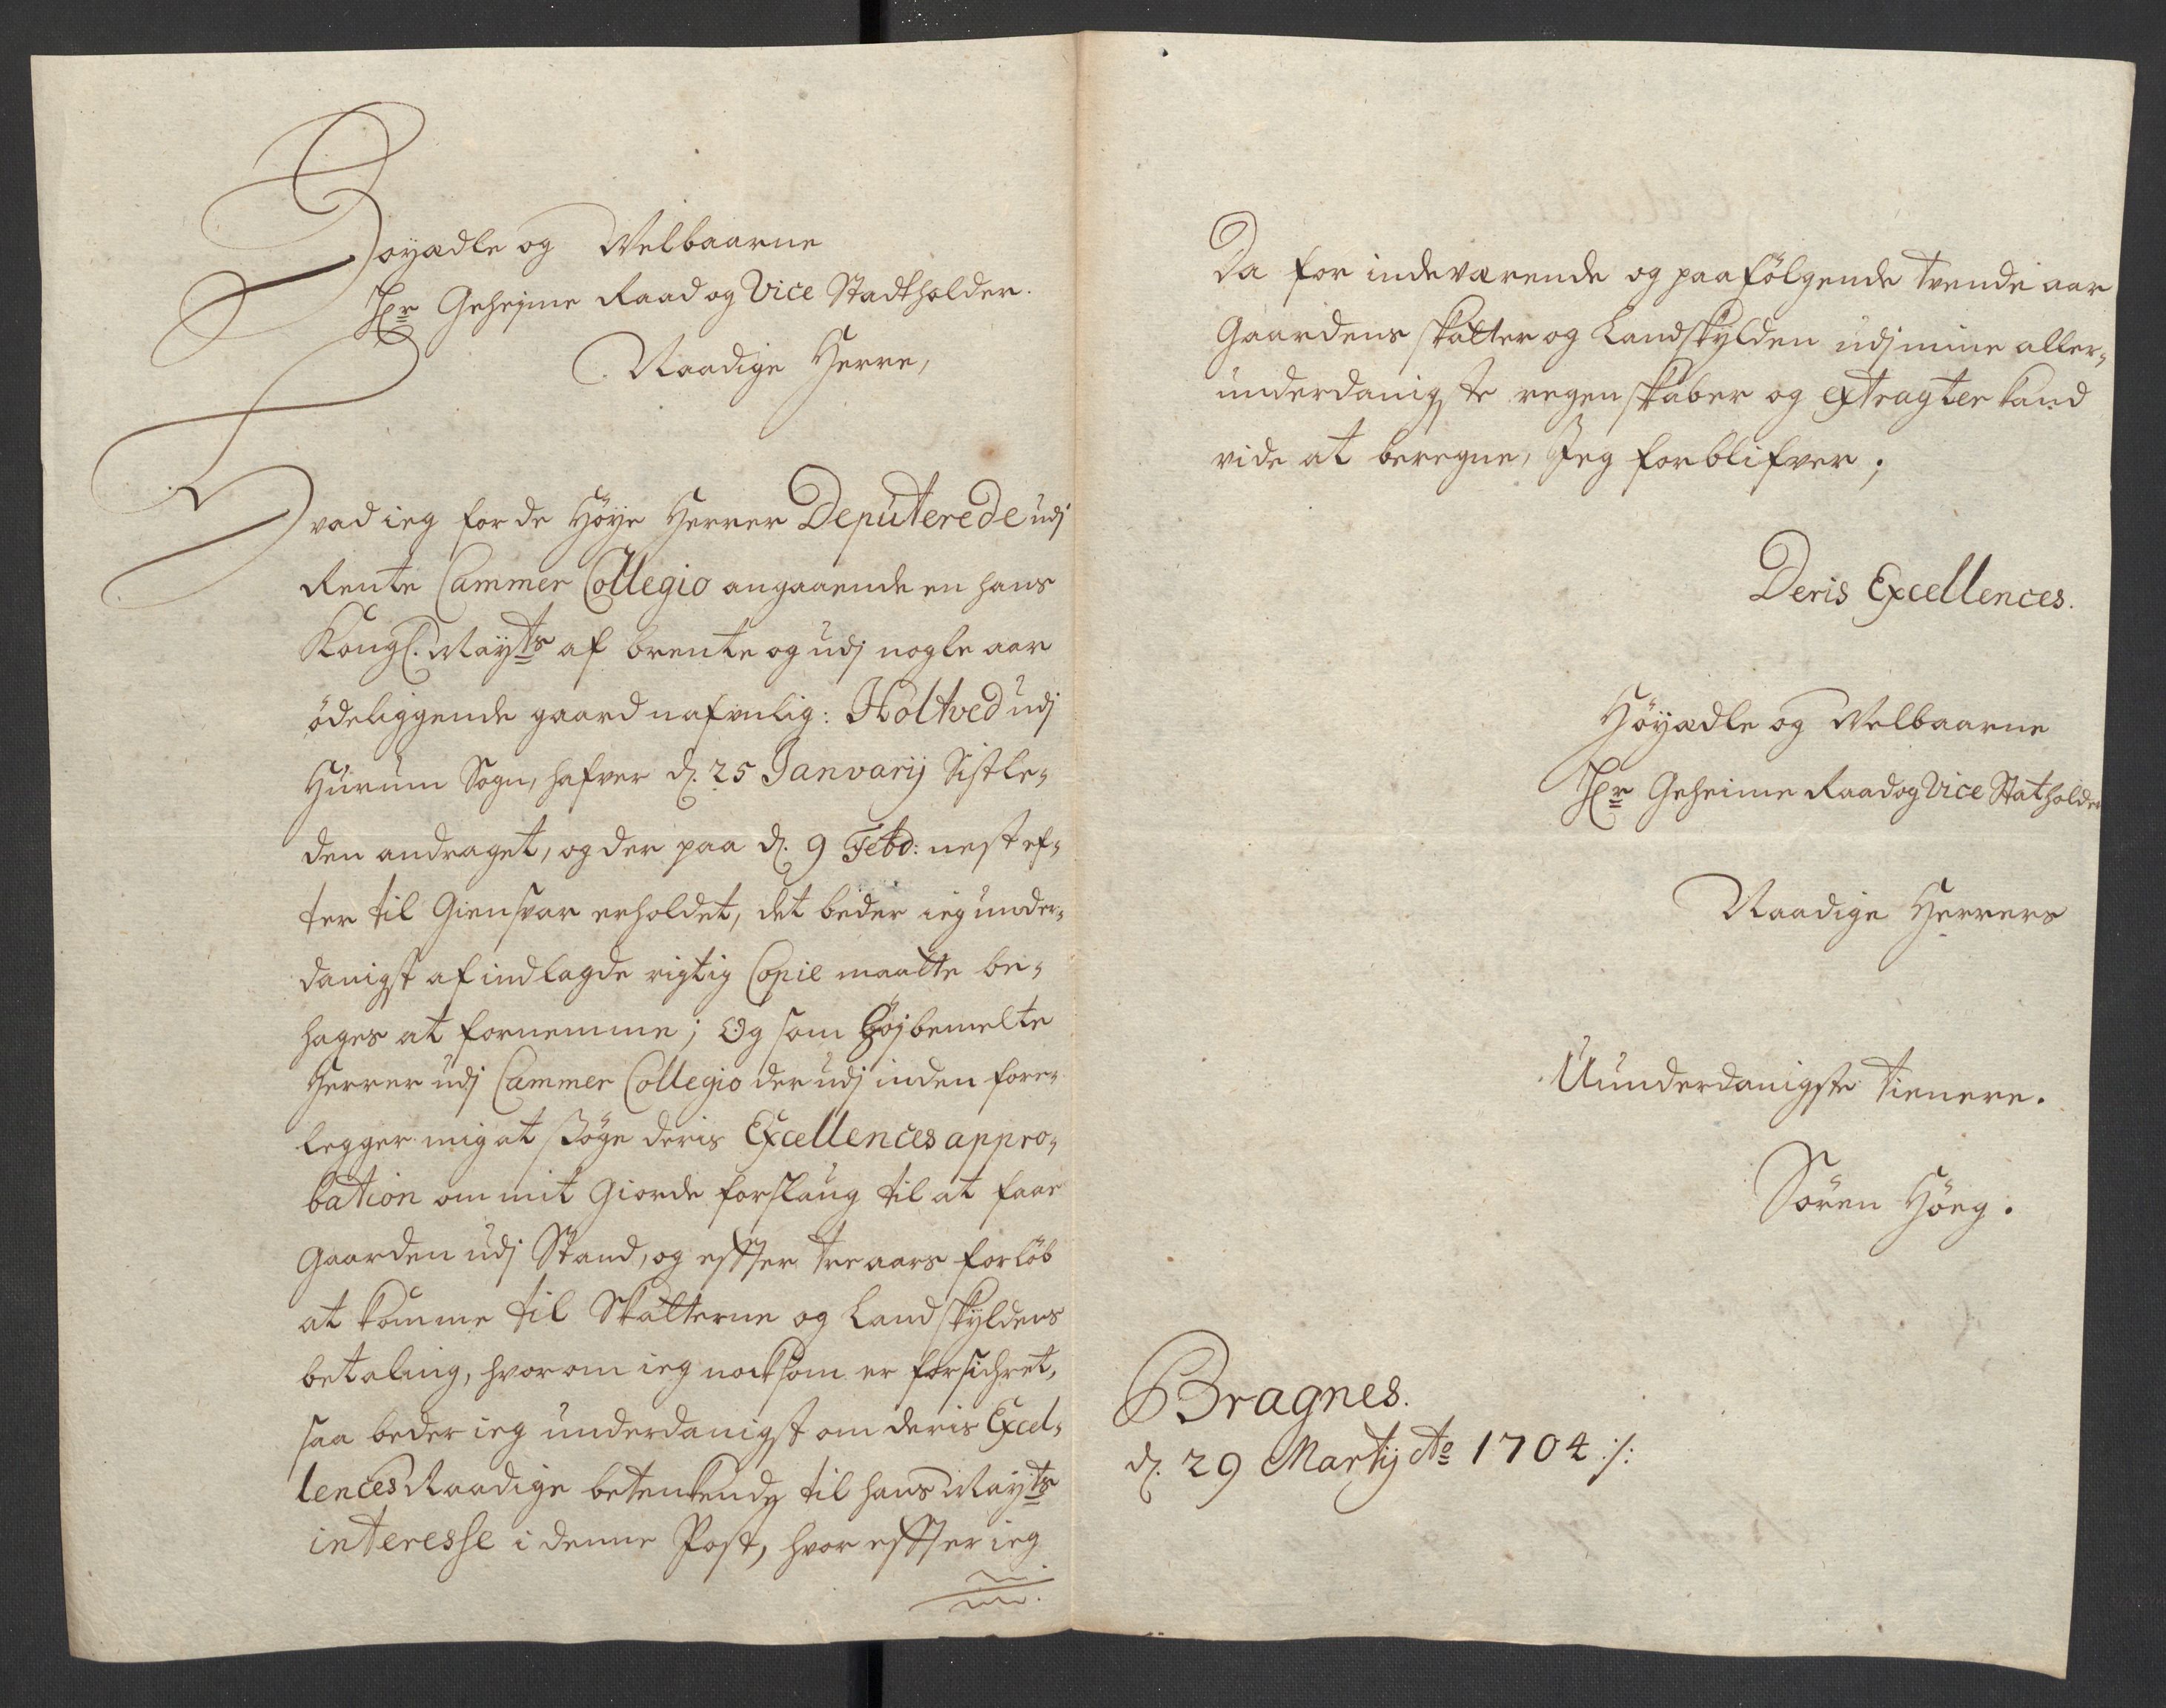 Höyædle og Velbaarne
Hr Geheime Raad og Vice Stadtholder.
Naadige Herre,
Hvad ieg for de Höye Herrer Deputerede udj
Rente Cammer Collegio angaaende en hans
Kongl. Mayts af brente og udj nogle aar
ödeliggende gaard nafnlig: Holtved udj
Hurum Sogn, hafver d. 25 Janvarij Sistle-
den andraget, og der paa d. 9 Febr: nest ef-
ter til Giensvar erholdet, det beder ieg under-
danigst af indlagde rigtig Copie maatte be-
hages at fornemme; Og som Höjbemelte
Herrer udj Cammer Collegio der udj inden fore-
legger mig at söge deris Excellences appro-
bation om mit Giorde forslaug til at faae
Gaarden udj Stand, og effter tre aars forlöb
at komme til Skatterne og Landskyldens
betaling, hvor om ieg nocksom er forsichret,
saa beder ieg underdanigst om deris Excel-
lences Naadige betenkende til hans Mayts
interesse i denne Post, hvor effter ieg
Da for indeværende og paafölgende trende aar
Gaardens skatter og Landskylden udj mine aller-
underdanigste regenskaber og extragter kand
vide at beregne, Jeg forblifver;
Deris Excellences.
Höyædle og Velbaarne
Hr Geheime Raad og Vice Statholder
Naadige Herrers
Uunderdanigste tienere.
Sören Höeg.
Bragnes.
d. 29 Martij Ao 1704 ./.